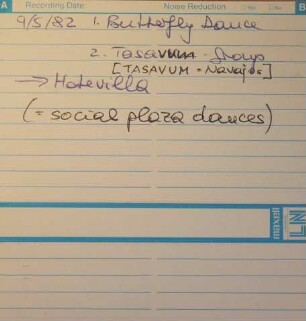 A Recording Date Noise Reduction Yes No B
9/5/82 1. Butterfly Dance
2. Tasavum - Group
[TASAVUM = Navajos]
→ Hotevilla
(= social plaza dances)
maxell LN